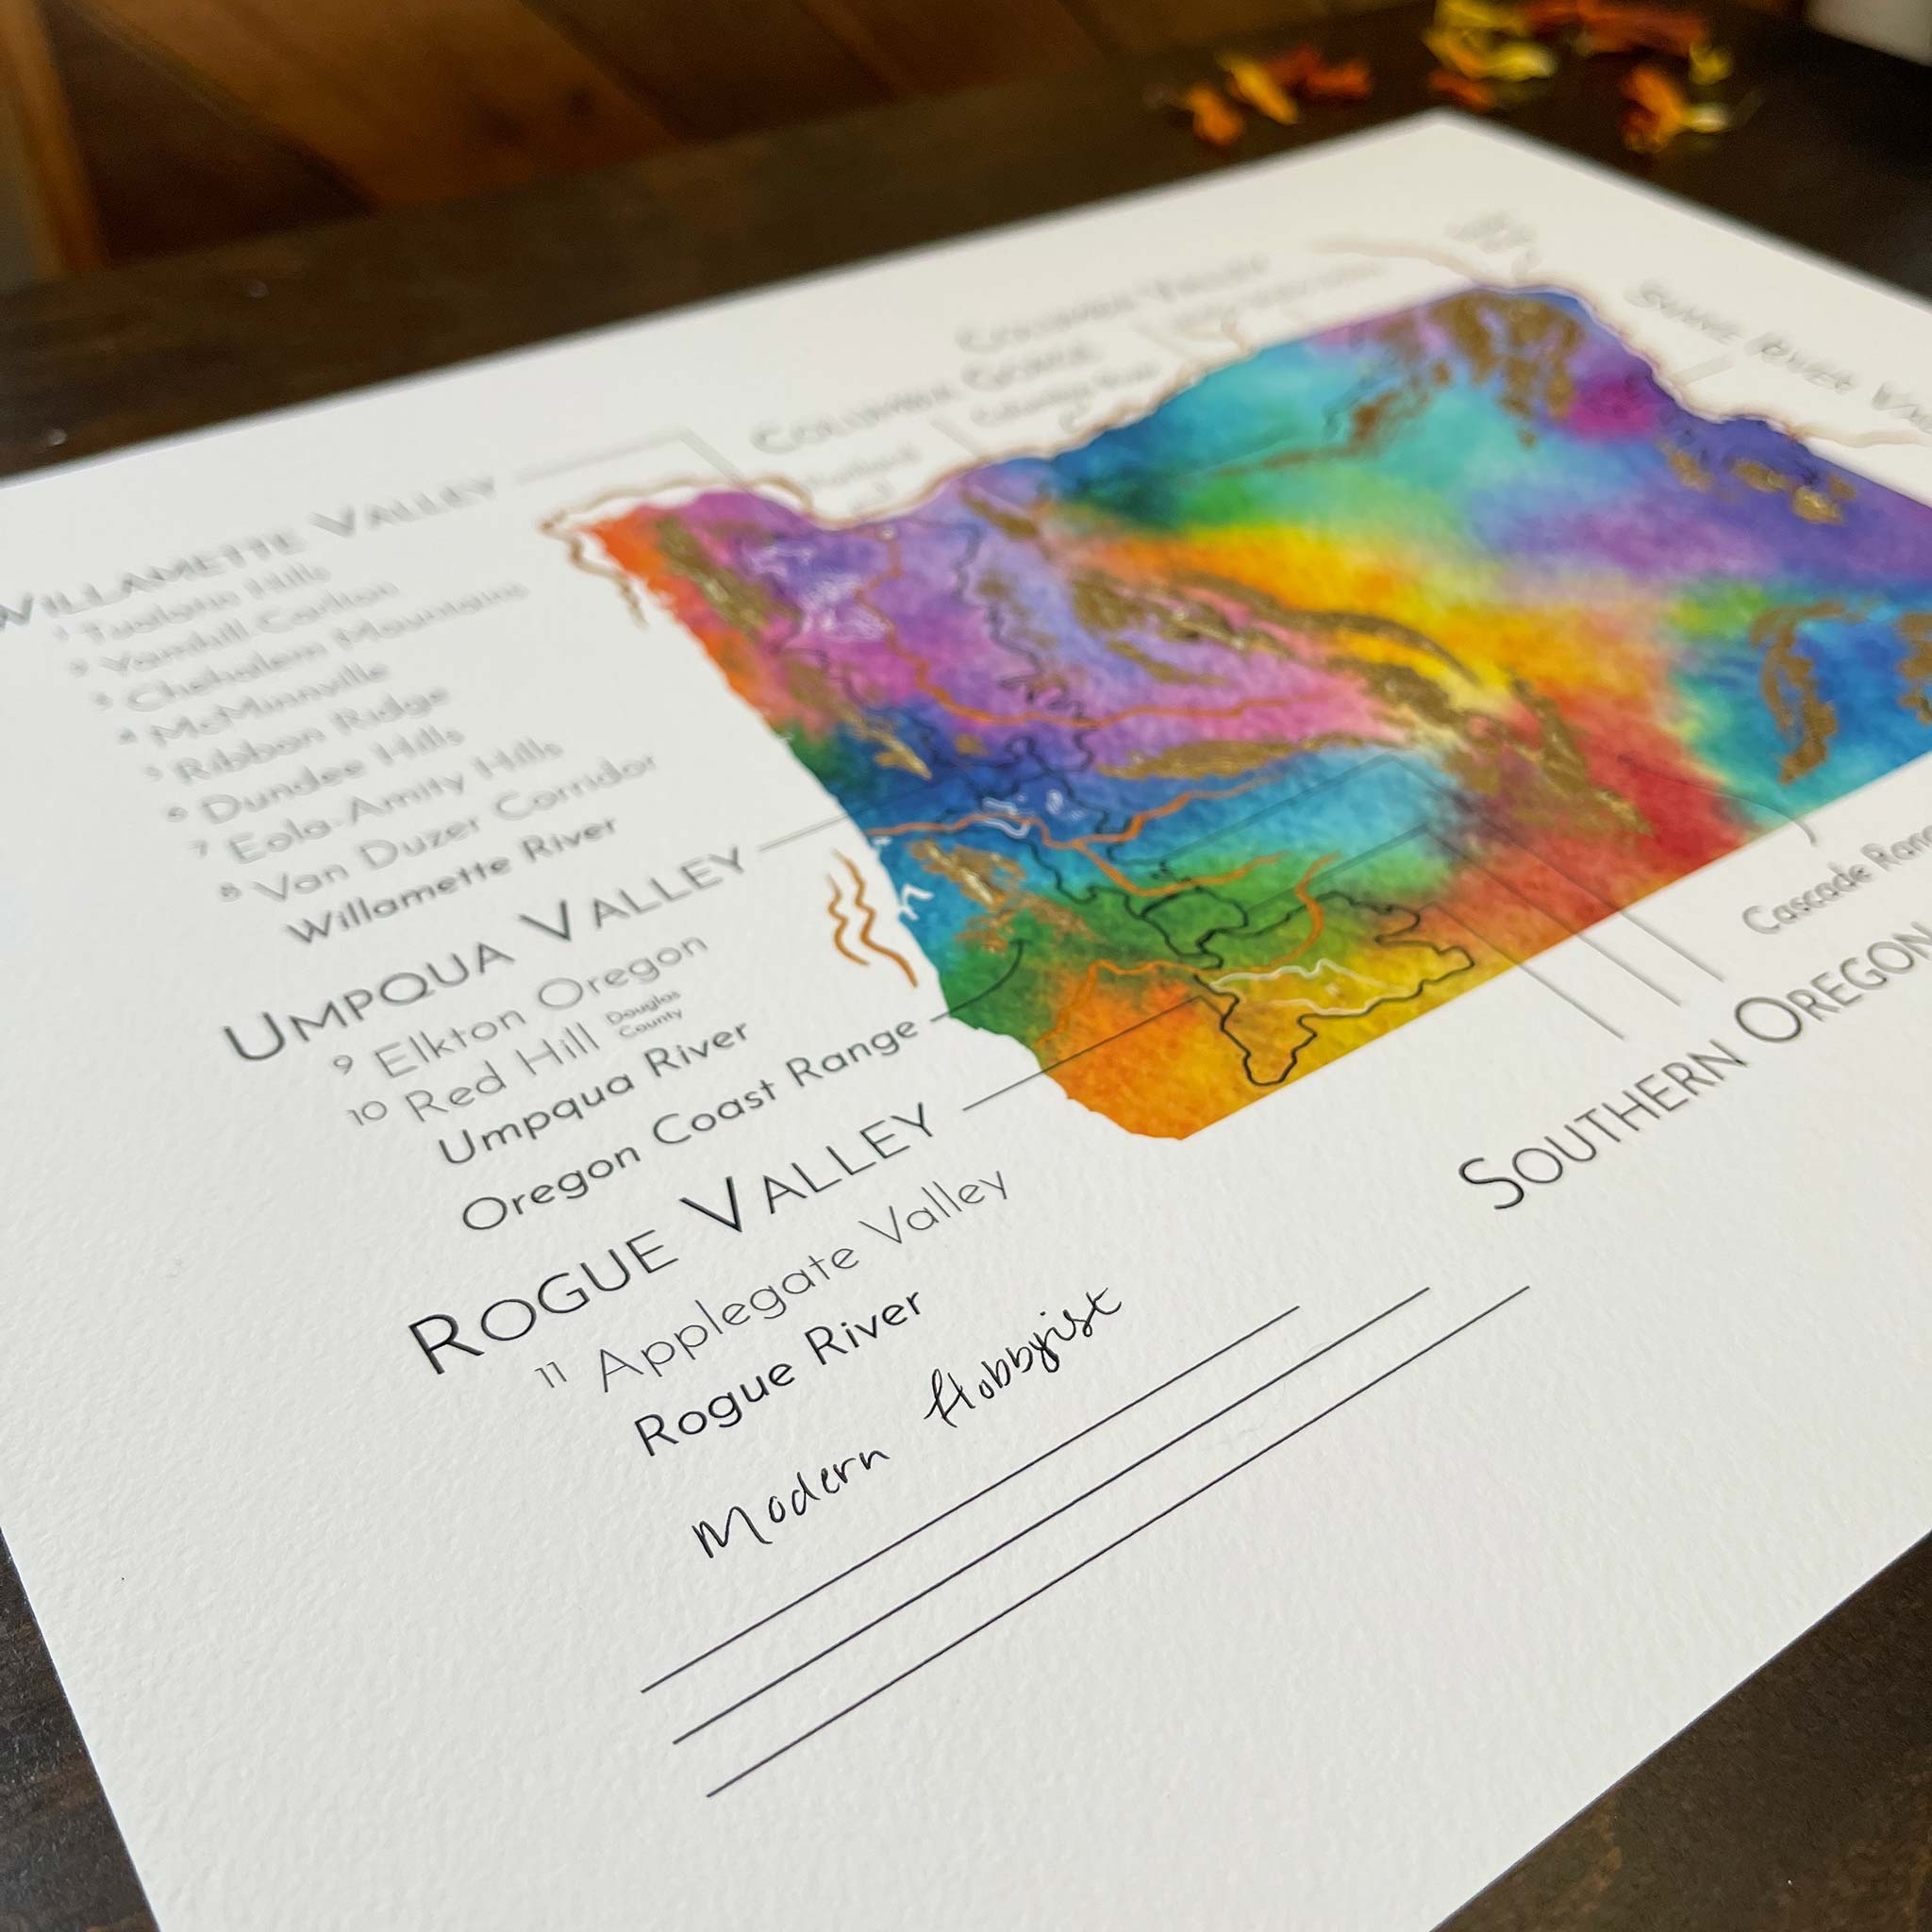 WILLAMETTE VALLEY
1 Tualatin Hills
2 Yamhill-Carlton
3 Chehalem Mountains
4 McMinnville
5 Ribbon Ridge
6 Dundee Hills
7 Eola-Amity Hills
8 Van Duzer Corridor
Willamette River
UMPQUA VALLEY
9 Elkton Oregon
10 Red Hill Douglas County
Umpqua River
Oregon Coast Range
ROGUE VALLEY
11 Applegate Valley
Rogue River
Modern Hobbyist
COLUMBIA VALLEY
COLUMBIA GORGE
Columbia River
Portland
SNAKE RIVER
Cascade
SOUTHERN OREGON